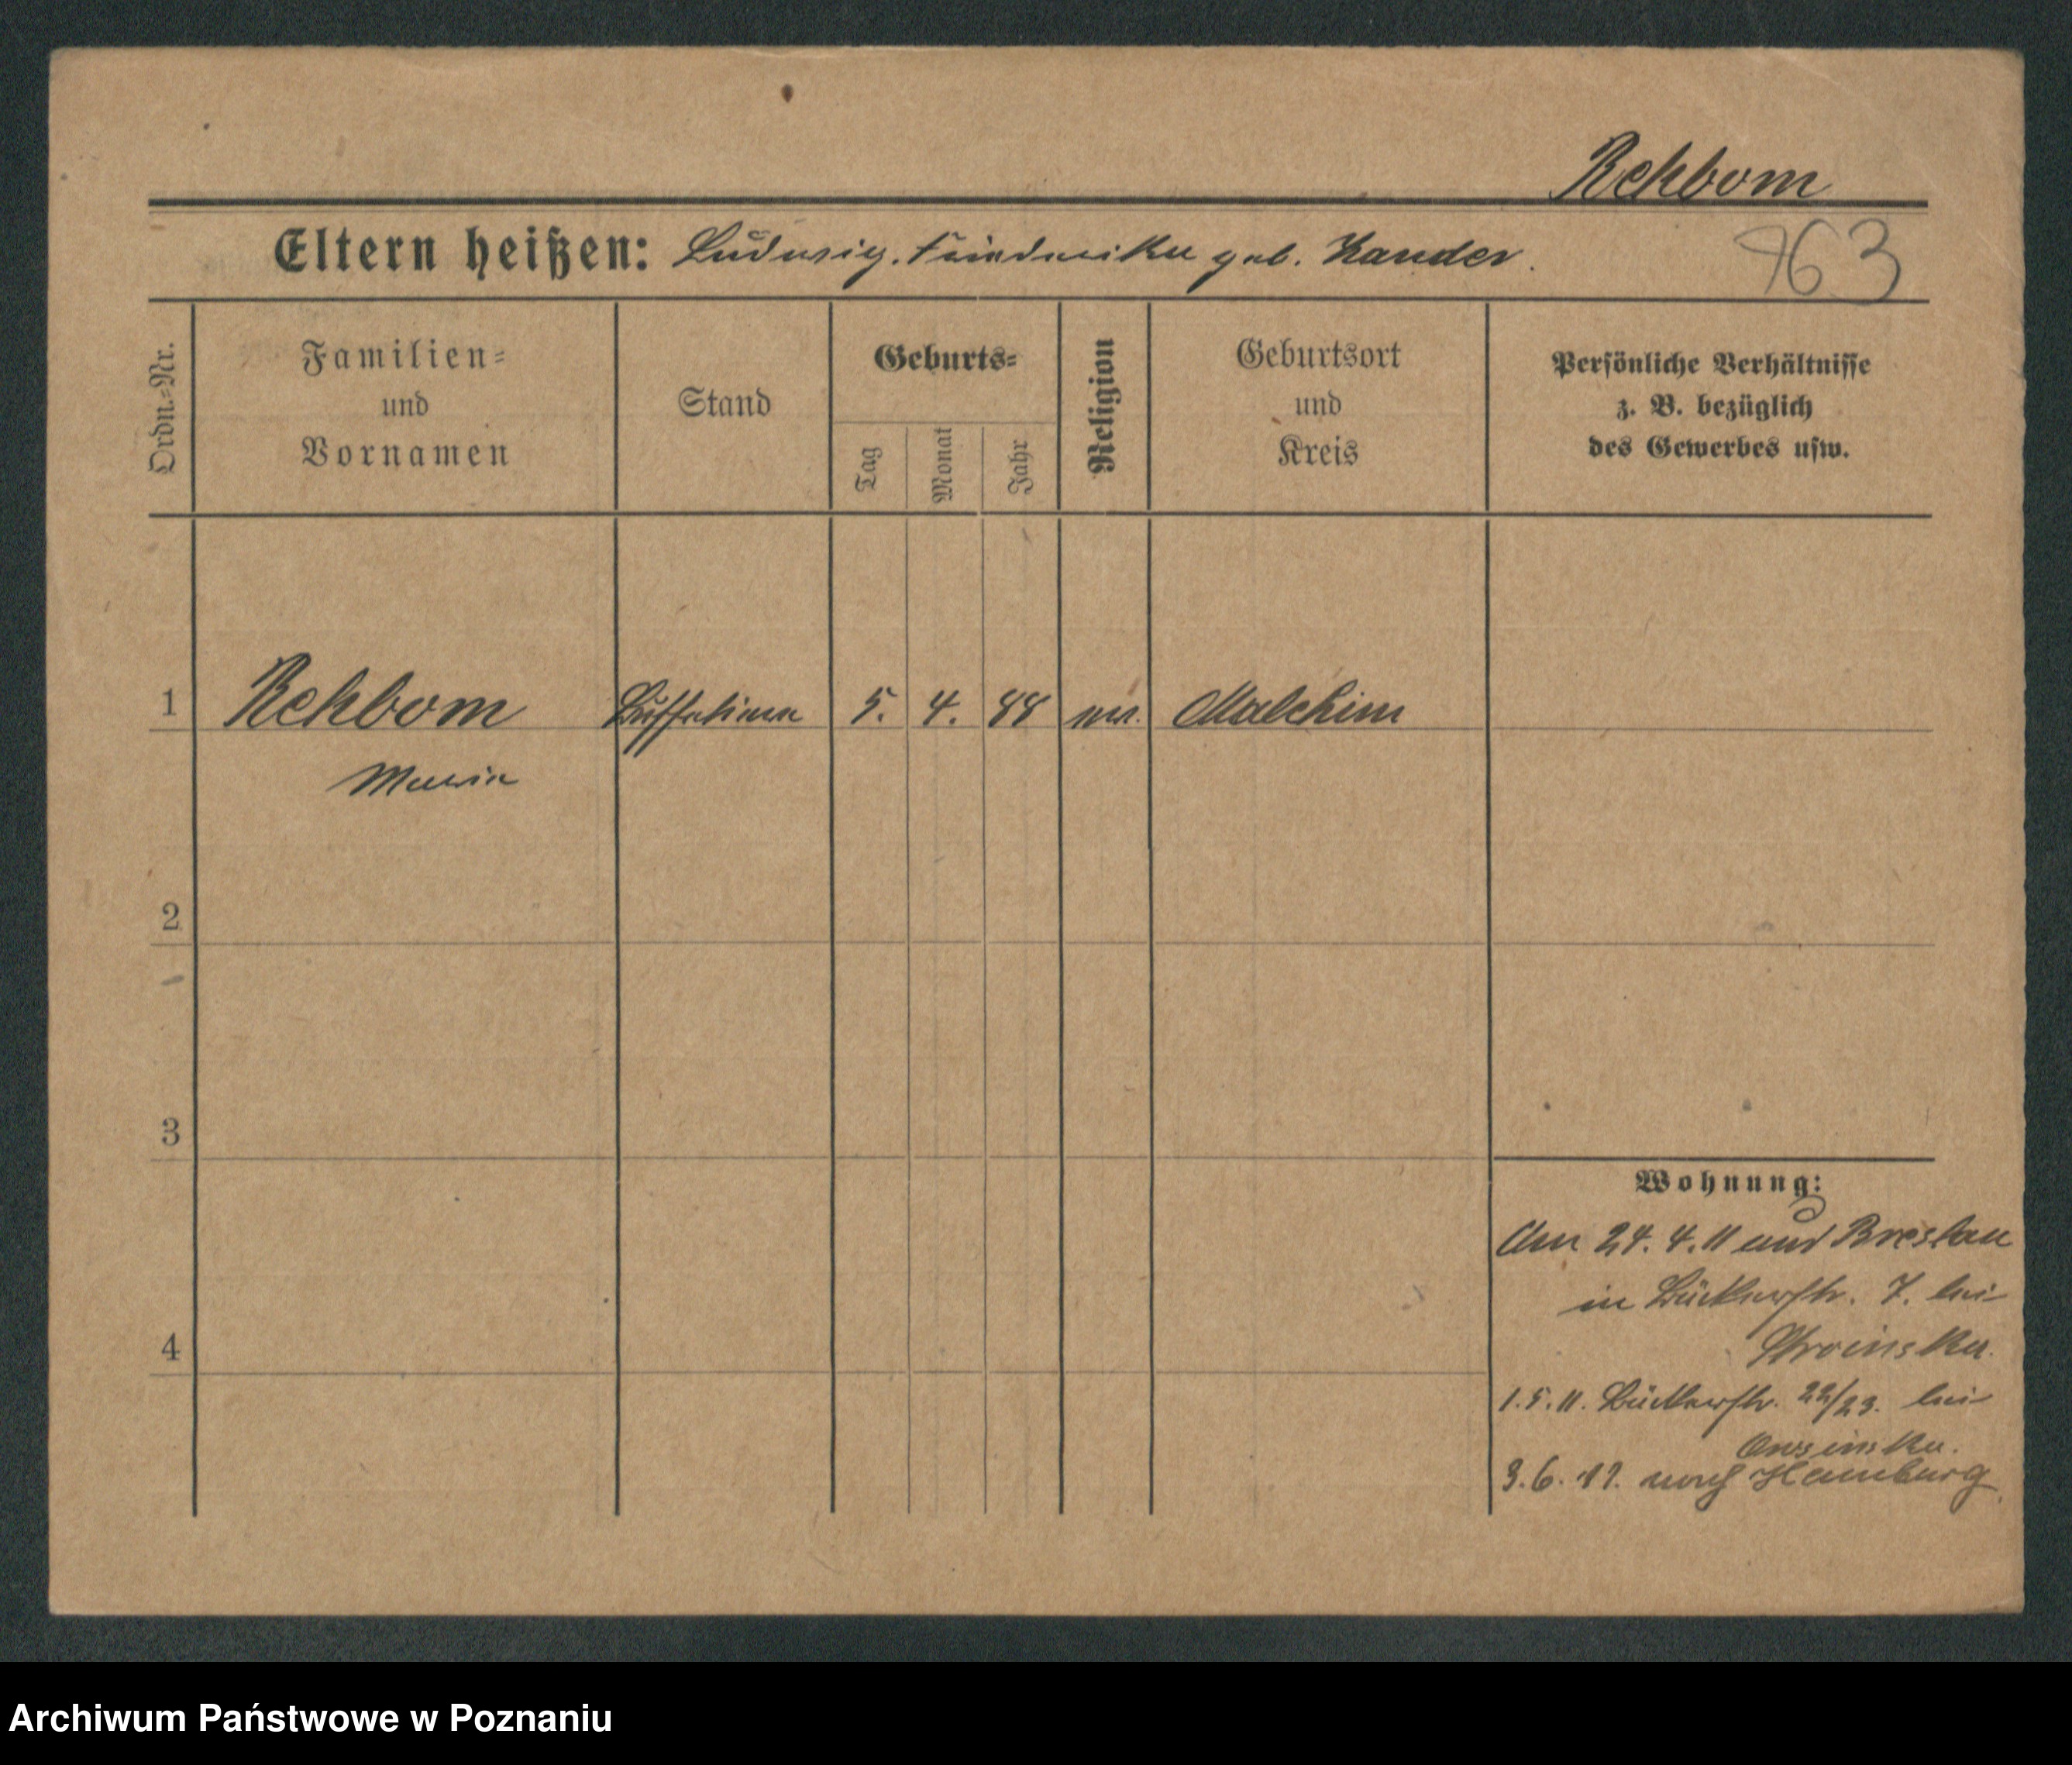 Rehbom
Eltern heißen: Ludwig, Friederike geb. Kander.
963
Ordn.-Nr.
Familien-
und
Vornamen
Stand
Geburts-
Tag
Monat
Jahr
Religion
Geburtsort
und
Kreis
Persönliche Verhältnisse
z. B. bezüglich
des Gewerbes usw.
1 Rehbom Büffetiere 5. 4. 88 Malchim
Maria
2
3
4
Wohnung:
Am 24. 4. 11 aus Breslau
in Bückerstr. 7. bei
Stroinska.
1. 5. 11. Bückerstr. 22/23. bei
3. 6. 11. nach Hamburg
Archiwum Państwowe w Poznaniu